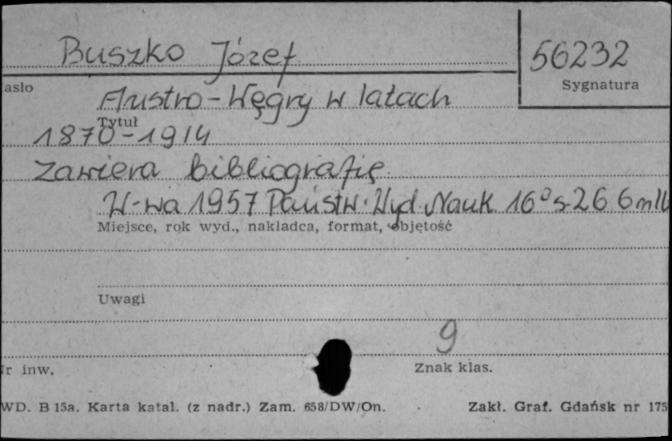 Buszko Józef
56232
asło
Sygnatura
Austro-Węgry w latach
Tytuł
1870-1914
Zawiera bibliografię
W-wa 1957 Państw. Wyd Nauk 16° s 26 6 mlb
Miejsce, rok wyd., nakładca, format, objętość
Uwagi
9
r inw.
Znak klas.
WD. B 15a. Karta katal. (z nadr.) Zam. 658/DW/On.
Zakł. Graf. Gdańsk nr 175